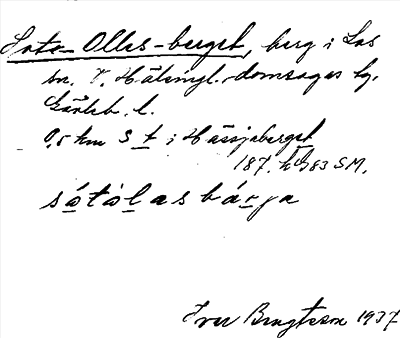 Sote-Olles-berget, berg i Los
sn. V. Hälsingl. domsagas tg.
Gävleb. l.
0,5 km S t i Hässjaberget
187. h 383 S.M.
sótòlasbárja
Iver Bengtsson 1937